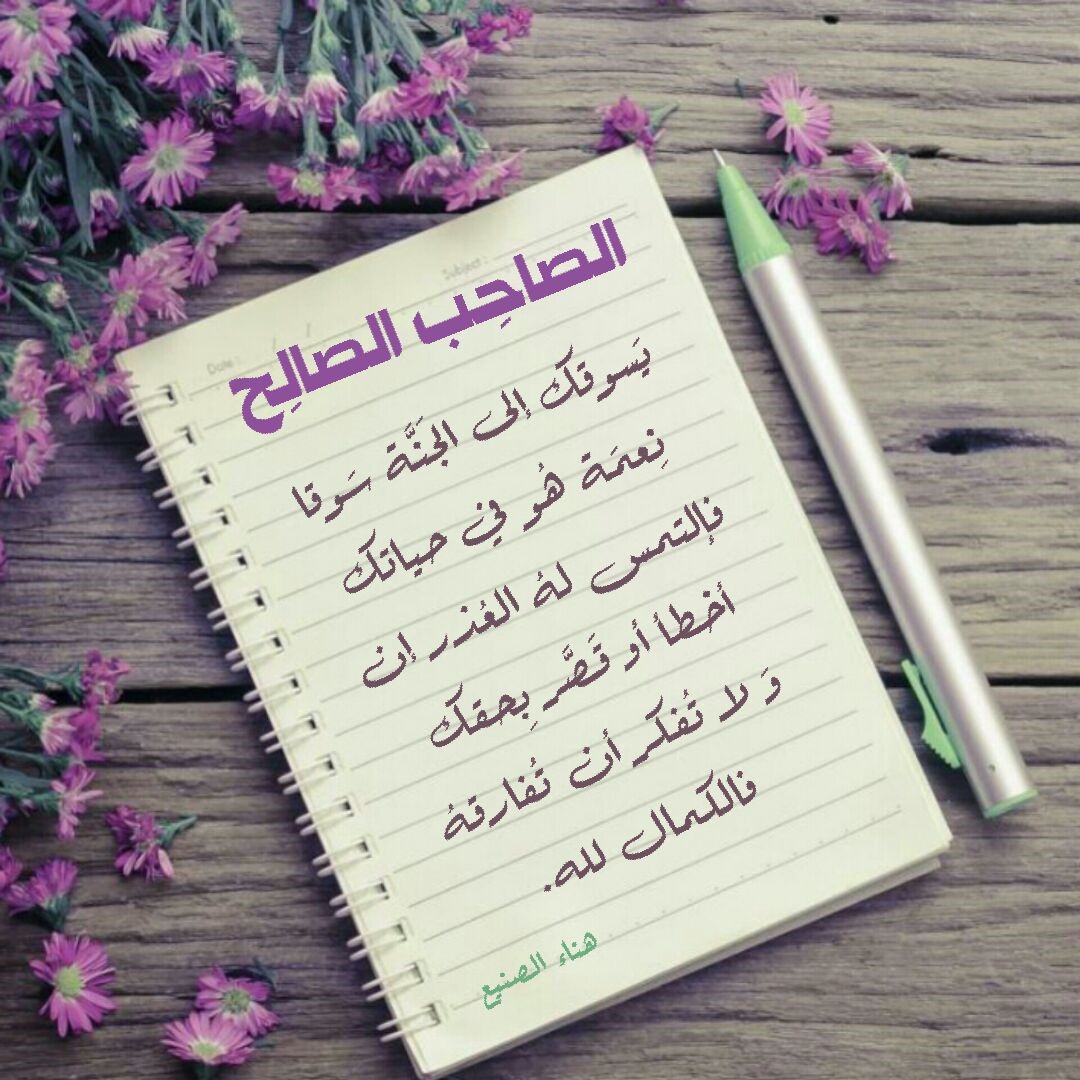 Subject :
Date :
الصاحِب الصالِح
يَسوقك إلى الجَنَّة سَوقا
نِعمَة هُو في حياتك
فإلتمس لهُ العُذر إن
أخطأ أو قَصَّر بِحقك
وَ لا تُفكر أن تُفارقهُ
فالكمال لله.
هناء الصنيع